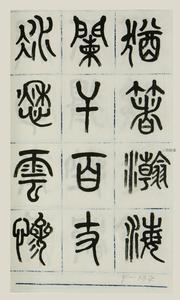 猶著瀚海
闌干百丈
冰愁雲慘